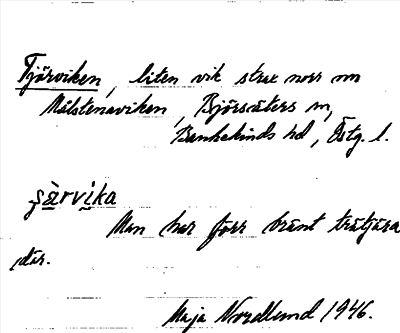 Tjärviken, liten vik strax norr om
Målstenaviken, Björsäters sn,
Bankekinds hd, Östg. l.
şàrvi̠ka
Man har förr bränt trätjära
där.
Maja Nordlund 1946.